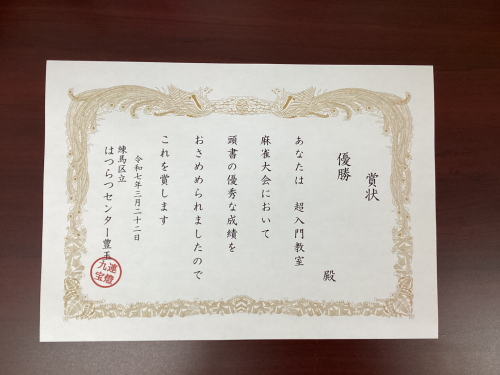 賞状
優勝
殿
あなたは 超入門教室
麻雀大会において
頭書の優秀な成績を
おさめめられましたので
これを賞します
令和七年三月二十二日
練馬区立
はつらつセンター豊玉
九連宝燈